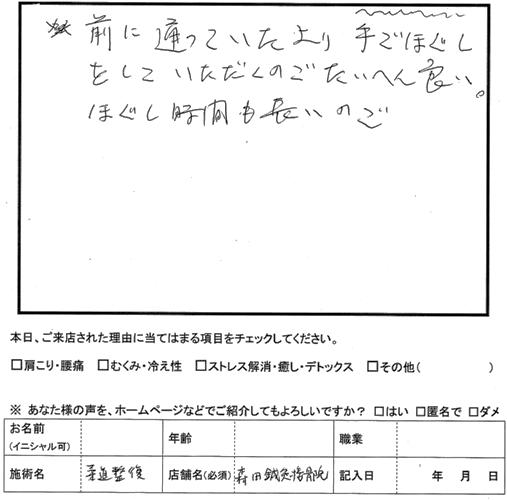 前に通っていたより手でほぐし
をしていただくのでたいへん良い。
ほぐし時間も長いので
本日、ご来店された理由に当てはまる項目をチェックしてください。
□肩こり・腰痛 □むくみ・冷え性 □ストレス解消・癒し・デトックス □その他( )
※ あなた様の声を、ホームページなどでご紹介してもよろしいですか？ □はい □匿名で □ダメ
お名前 年齢 職業
(イニシャル可)
施術名 柔道整復 店舗名(必須) 森田鍼灸接骨院 記入日 年 月 日